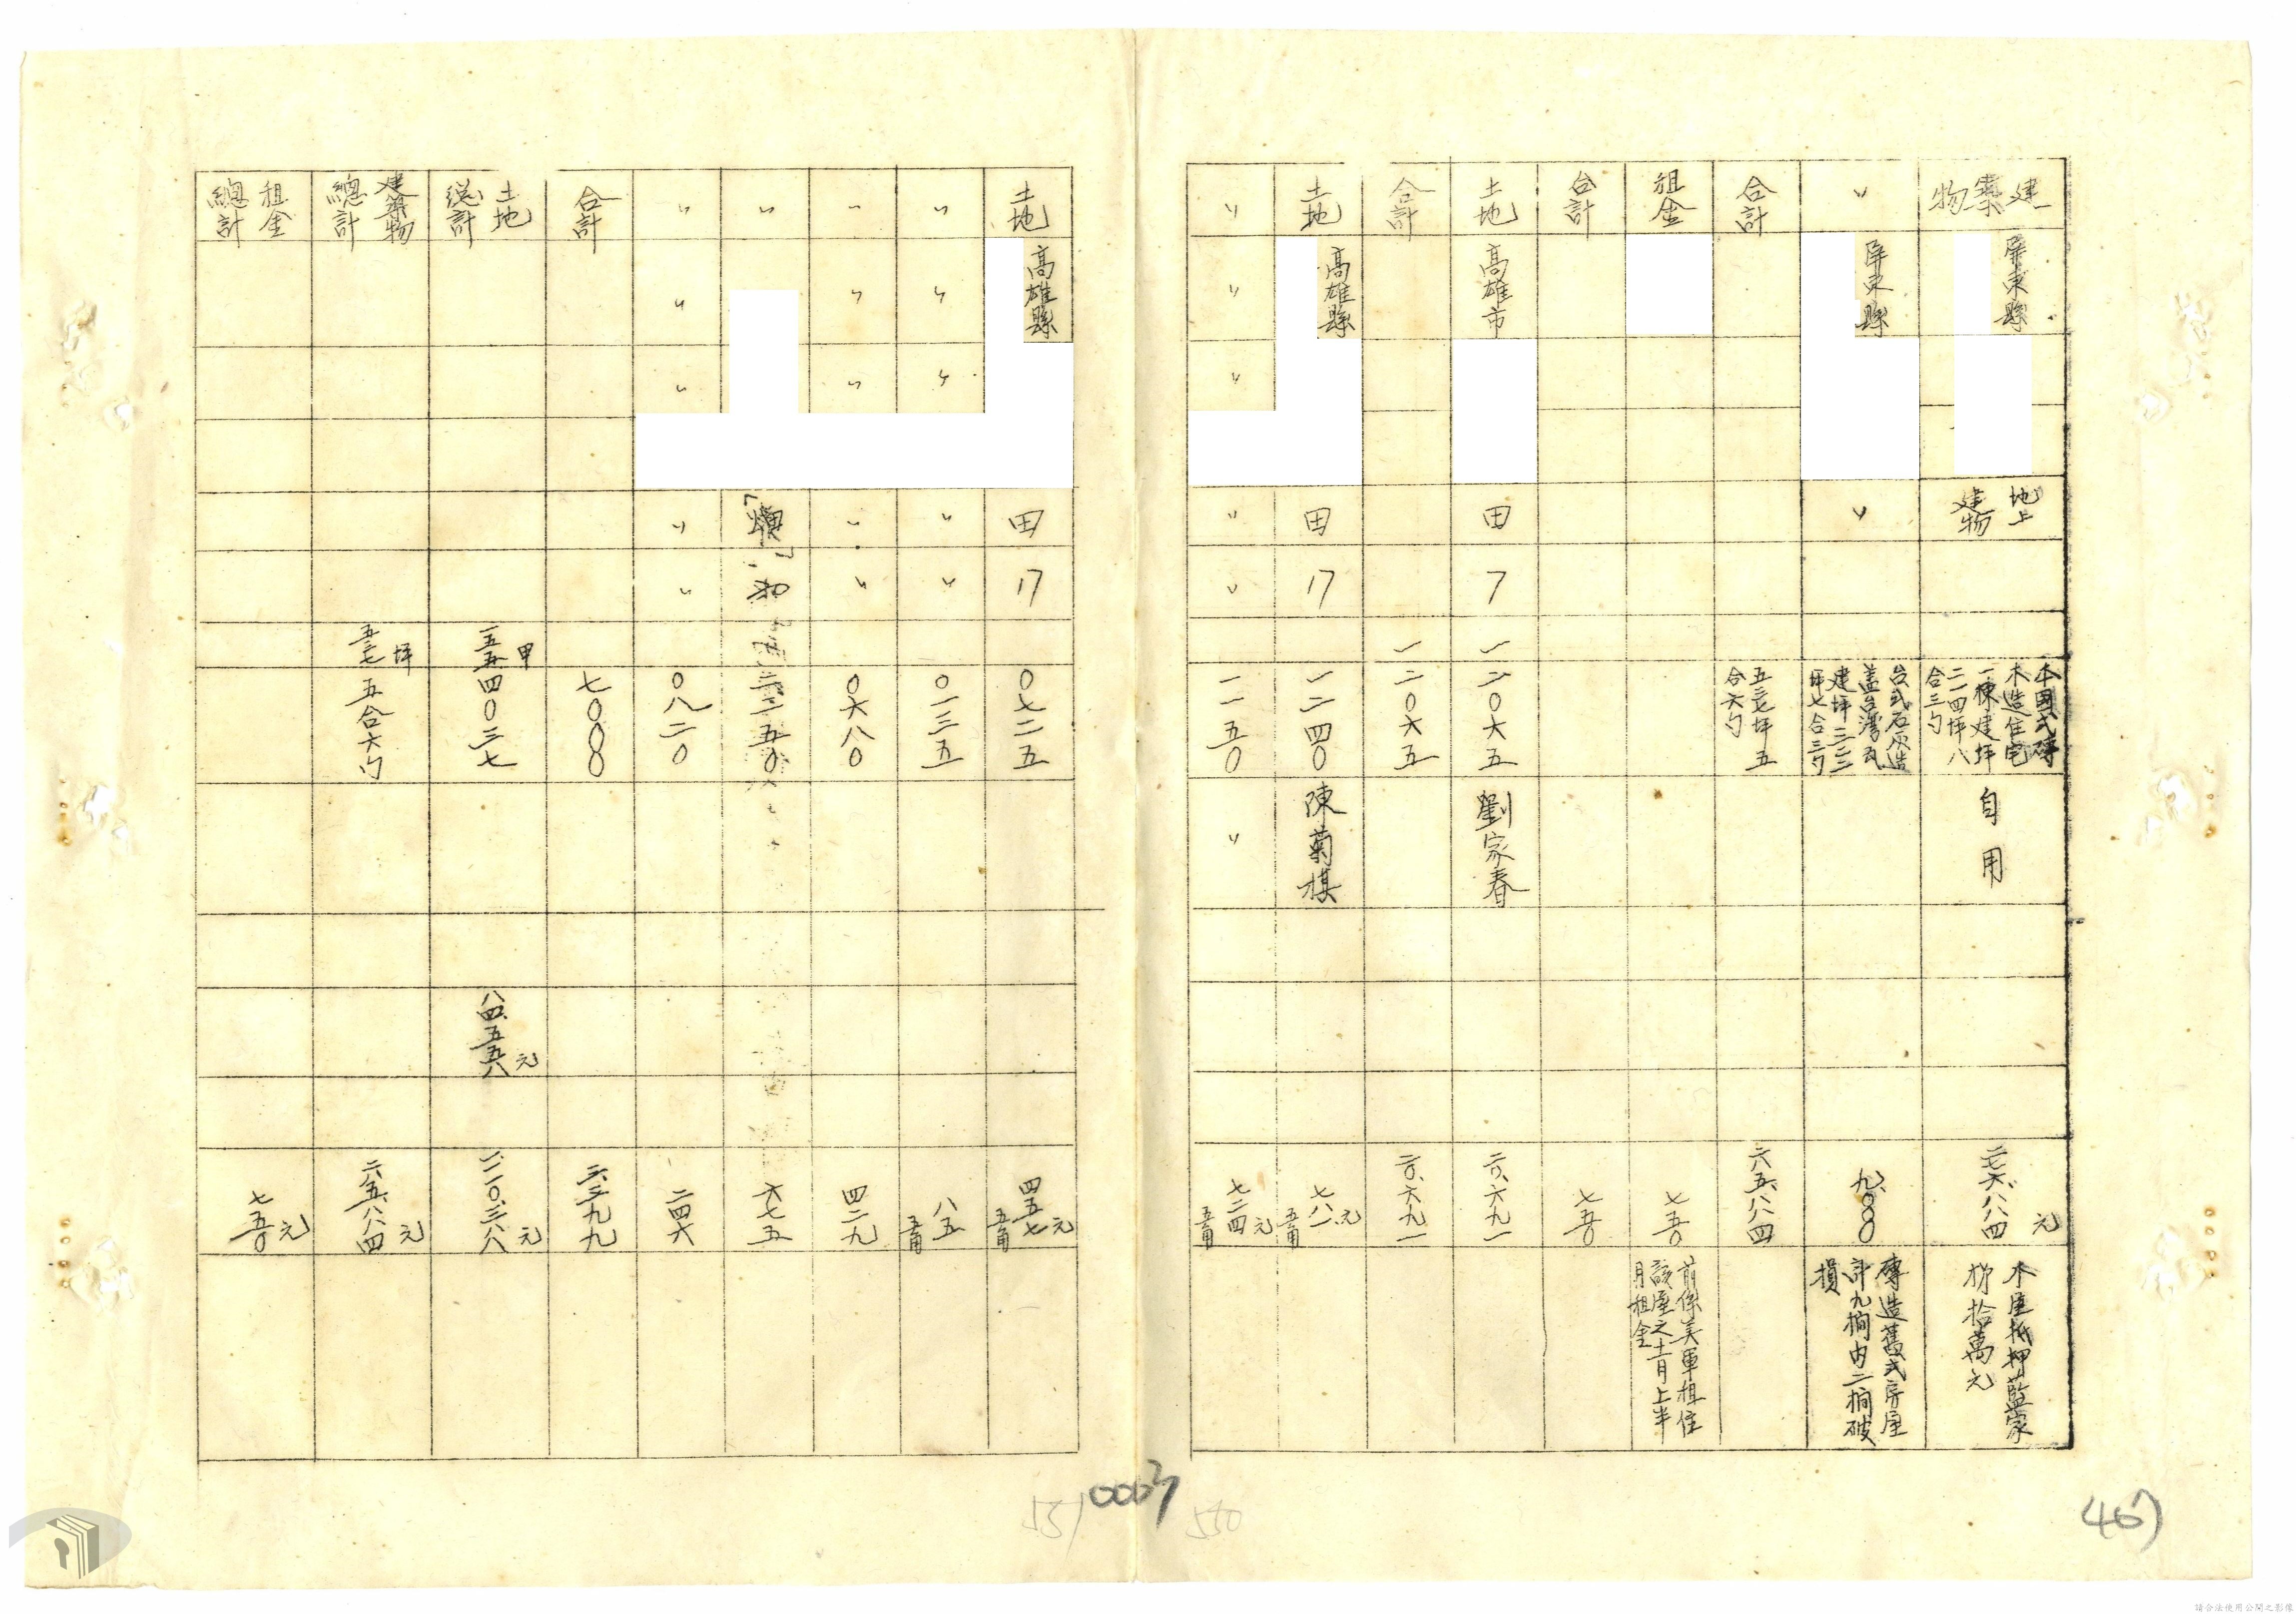 建築物 屏東縣 地上建物 本國式磚木造住宅一棟建坪二一四坪八合三勺 自用 二七六、八八四元 木屋抵押藍家 拾萬元
〃 屏東縣 〃 台式石灰造蓋台灣瓦建坪三二二坪七合三勺 九、〇〇〇 磚造舊式房屋計九間內二間破損
合計 五三七坪五合六勺 六五、八八四
租金 七五〇 前係美軍租住該屋之十一月上半月租金
合計 七五〇
土地 高雄市 田 7 一 二〇六五 劉家春 二〇、六九一
合計 一 二〇六五 二〇、六九一
土地 高雄縣 田 17 一二四〇 陳菊棋 七八一元五角
〃 〃 〃 〃 〃 一一五〇 〃 七二四元五角
土地 高雄縣 田 17 〇七二五 四五七元五角
〃 〃 〃 〃 〃 〇一三五 八五五角
〃 〃 〃 〃 〃 〇六八〇 四二九
〃 二一五〇 六七五
〃 〃 〃 〃 〃 〇八二〇 二四六
合計 七〇〇〇 三、三九九
土地總計 一五五甲四〇三七 八四、五五八元 一二〇、三一八元
建築物總計 五三七坪五合六勺 二六五、八八四元
租金總計 七五〇元
551
0003
550
(46)
請合法使用公開之影像